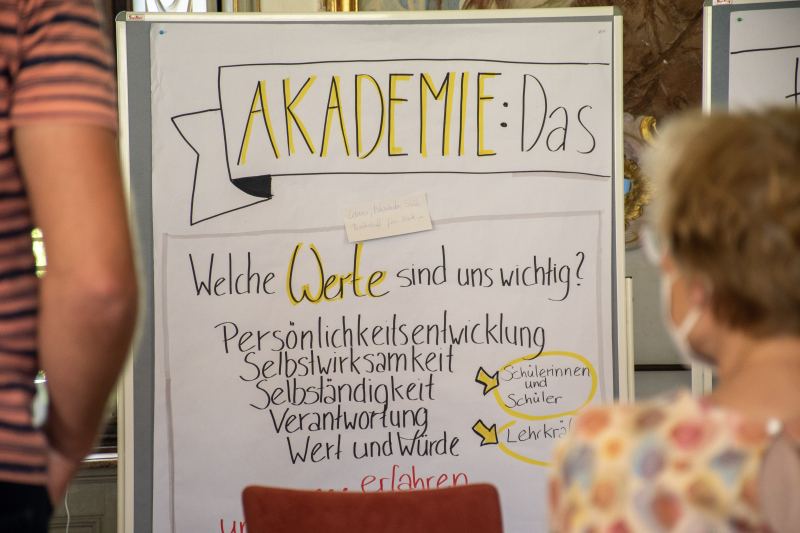 AKADEMIE: Das
Welche Werte sind uns wichtig?
Persönlichkeitsentwicklung
Selbstwirksamkeit
Selbständigkeit
Verantwortung
Wert und Würde
Schülerinnen
und
Schüler
erfahren